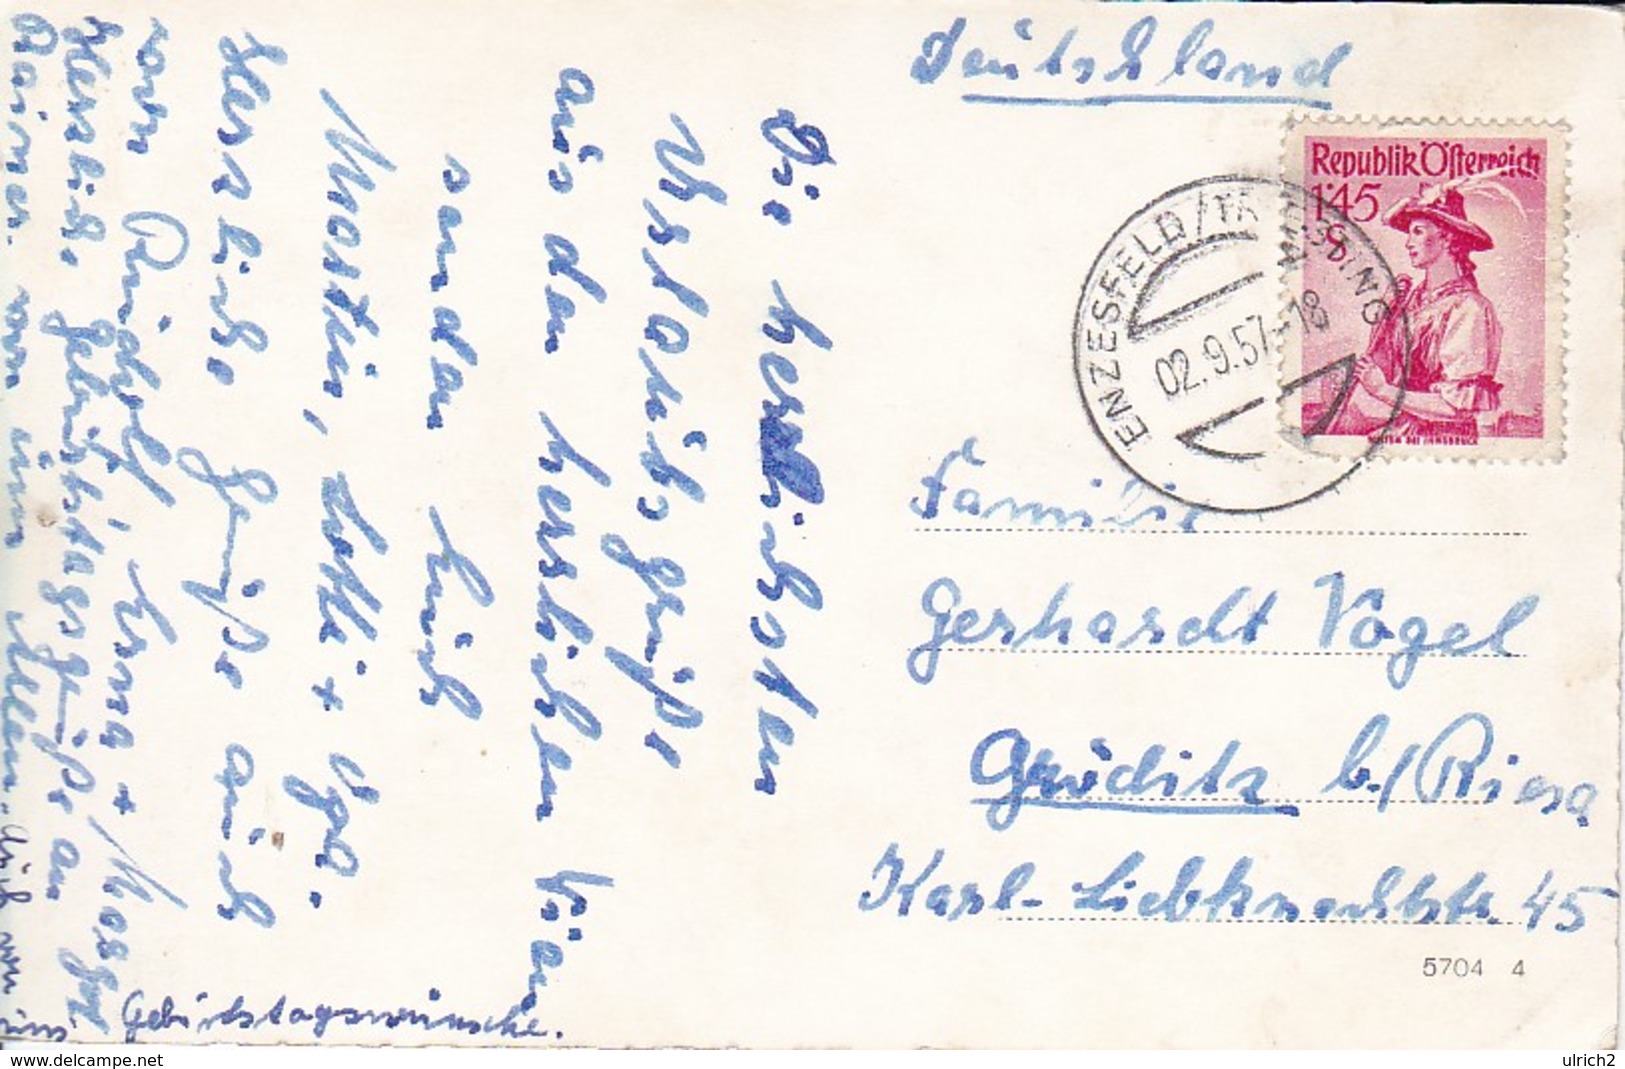 Deutschland
Republik Österreich
1.45
S
ENZESFELD/TRIESTING
02.9.57-18
Familie
Gerhardt Vogel
Gröditz b./Riesa
Karl-Liebknechtstr. 45
5704 4
Die herzlichsten
Urlaubsgrüße
aus dem herrlichen Wien
senden Euch
Martin, Lotti + Epa.
Herzliche Grüße auch
von Rudolf, Erna + Margot
Herzliche Geburtstagsgrüße an
Rainer von uns allen. Auch von
uns Geburtstagswünsche.
delcampe.net
ulrich2